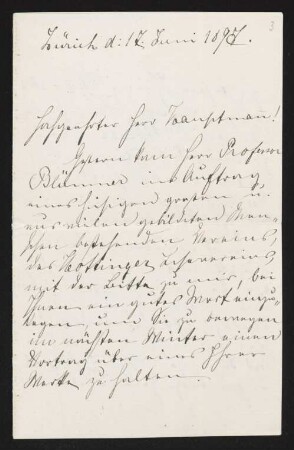 3
Zürich d: 17. Juni 1897.
Hochgeehrter Herr Hauptmann!
Gestern kam Herr Professor
Blümner im Auftrag
eines hiesigen großen u.
aus vielen gebildeten Men-
schen bestehenden Vereins,
des Hottinger Lesevereins,
mit der Bitte zu mir, bei
Ihnen ein gutes Wort einzu-
legen, um Sie zu bewegen
im nächsten Winter einen
Vortrag über eines Ihrer
Werke zu halten.